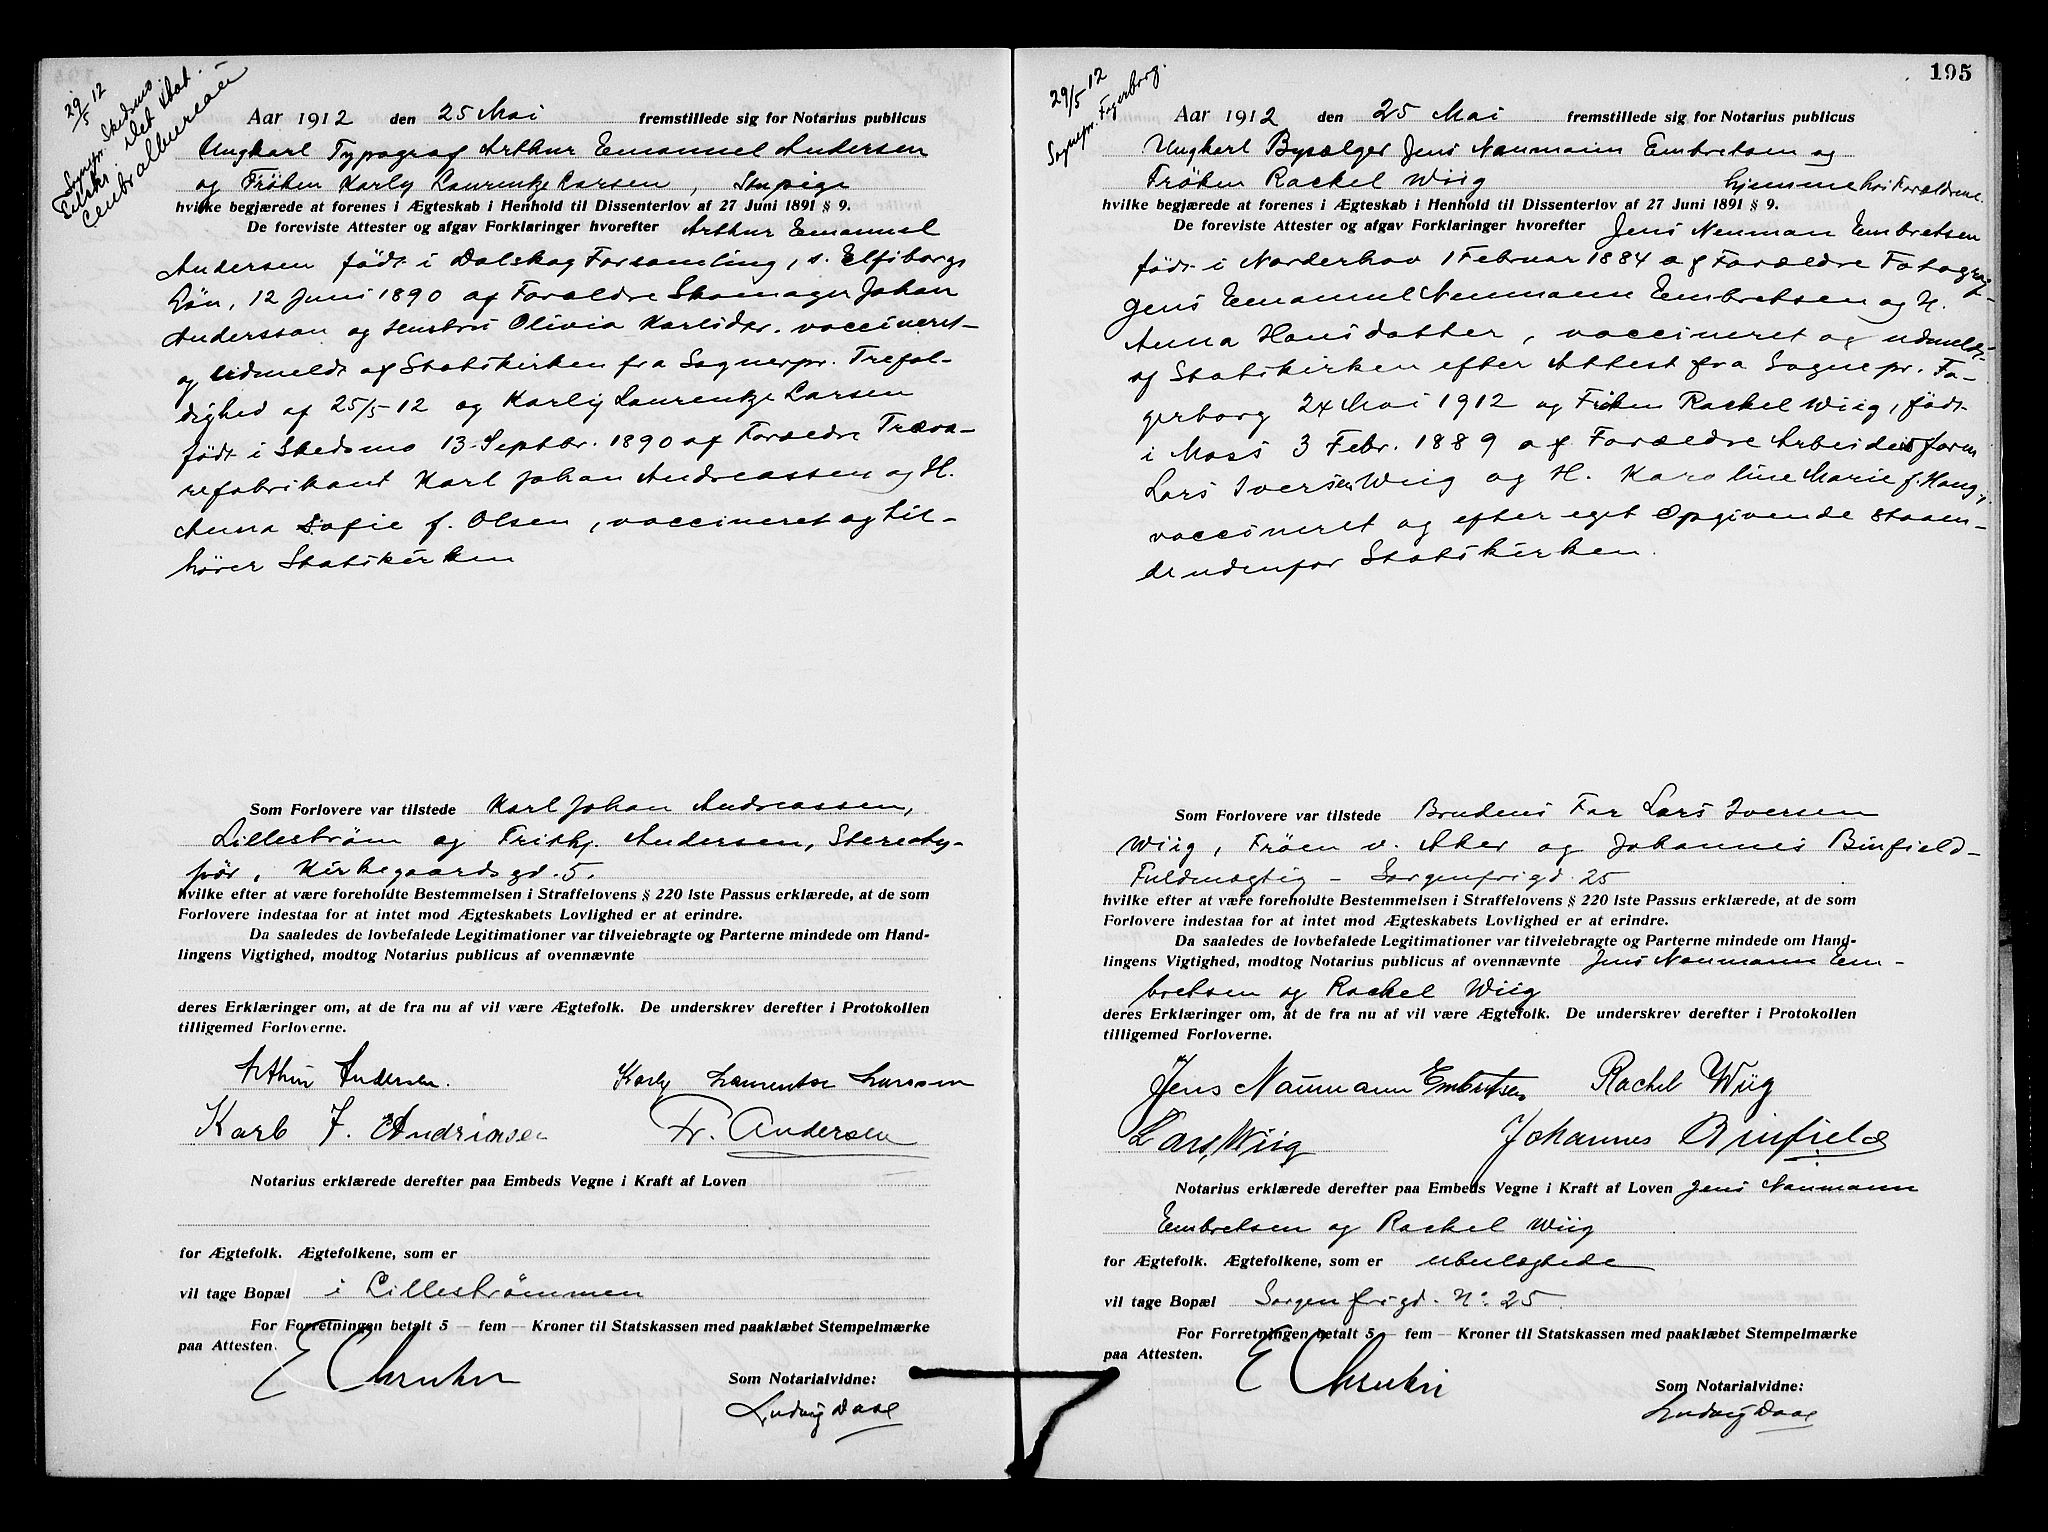 29/5 12
Sognepr. Skedsmo
Det stat.
Centralbureau
Aar 1912 den 25 Mai fremstillede sig for Notarius publicus
Ungkarl Typograf Arthur Emanuel Andersen
og Fröken Karly Laurentze Larsen,
hvilke begjærede at forenes i Ægteskab i Henhold til Dissenterlov af 27 Juni 1891 § 9.
De foreviste Attester og afgav Forklaringer hvorefter Arthur Emanuel
Andersen födt i Dalskog Forsamling, s. Elfsborgs
Län, 12 Juni 1890 af Forældre Skomager Johan
Andersson og Hustru Olivia Karlsdr. vaccineret
og udmeldt af Statskirken fra Sognepr. Trefol-
dighed af 25/5-12 og Karly Laurentze Larsen
födt i Skedsmo 13 Septbr. 1890 af Forældre Træva-
refabrikant Karl Johan Andreassen og H.
Anna Sofie f. Olsen, vaccineret og til-
hörer Statskirken
Som Forlovere var tilstede Karl Johan Andreassen,
Lilleström og Frithj. Andersen, Stereoty-
pör, Kirkegaardsgd. 5.
hvilke efter at være foreholdte Bestemmelsen i Straffelovens § 220 lste Passus erklærede, at de som
Forlovere indestaa for at intet mod Ægteskabets Lovlighed er at erindre.
Da saaledes de lovbefalede Legitimationer var tilveiebragte og Parterne mindede om Hand-
lingens Vigtighed, modtog Notarius publicus af ovennævnte
deres Erklæringer om, at de fra nu af vil være Ægtefolk. De underskrev derefter i Protokollen
tilligemed Forloverne.
Arthur Andersen. Karly Laurentze Larsen
Karl J. Andriasen Fr. Andersen
Notarius erklærede derefter paa Embeds Vegne i Kraft af Loven
for Ægtefolk. Ægtefolkene, som er
vil tage Bopæl i Lilleströmmen
For Forretningen betalt 5 — fem — Kroner til Statskassen med paaklæbet Stempelmærke
paa Attesten.
Som Notarialvidne:
Ludvig Daae
195
29/5 12
Sognepr. Fagerborg.
Aar 1912 den 25 Mai fremstillede sig for Notarius publicus
Ungkarl Bysælger Jens Naumann Embretsen og
Fröken Rackel Wiig hjemme hos Forældrene.
hvilke begjærede at forenes i Ægteskab i Henhold til Dissenterlov af 27 Juni 1891 § 9.
De foreviste Attester og afgav Forklaringer hvorefter Jens Neuman Embretsen
födt i Norderhov 1 Februar 1884 af Forældre Fotograf
Jens Emanuel Neumann Embretsen og H.
Anna Hansdatter, vaccineret og udmeldt
af Statskirken efter Attest fra Sognepr. Fa-
gerborg 24 Mai 1912 og Fröken Rackel Wiig, födt
i Moss 3 Febr. 1889 af Forældre Arbeidsform
Lars Iversen Wiig og H. Karoline Marie f. Haug,
vaccineret og efter eget Opgivende staaen-
de udenfor Statskirken.
Som Forlovere var tilstede Brudens Far Lars Iversen
Wiig, Fröen v. Aker og Johannes Binfield-
Fuldmægtig - Sorgenfrigd. 25
hvilke efter at være foreholdte Bestemmelsen i Straffelovens § 220 lste Passus erklærede, at de som
Forlovere indestaa for at intet mod Ægteskabets Lovlighed er at erindre.
Da saaledes de lovbefalede Legitimationer var tilveiebragte og Parterne mindede om Hand-
lingens Vigtighed, modtog Notarius publicus af ovennævnte Jens Naumann Em-
bretsen og Rackel Wiig
deres Erklæringer om, at de fra nu af vil være Ægtefolk. De underskrev derefter i Protokollen
tilligemed Forloverne.
Jens Naumann Embretsen Rachel Wiig
Lars Wiig Johannes Binfield
Notarius erklærede derefter paa Embeds Vegne i Kraft af Loven Jens Naumann
Embretsen og Rackel Wiig
for Ægtefolk. Ægtefolkene, som er ubeslægtede
vil tage Bopæl Sorgenfrigd. No. 25
For Forretningen betalt 5 — fem — Kroner til Statskassen med paaklæbet Stempelmærke
paa Attesten.
Som Notarialvidne:
Ludvig Daae